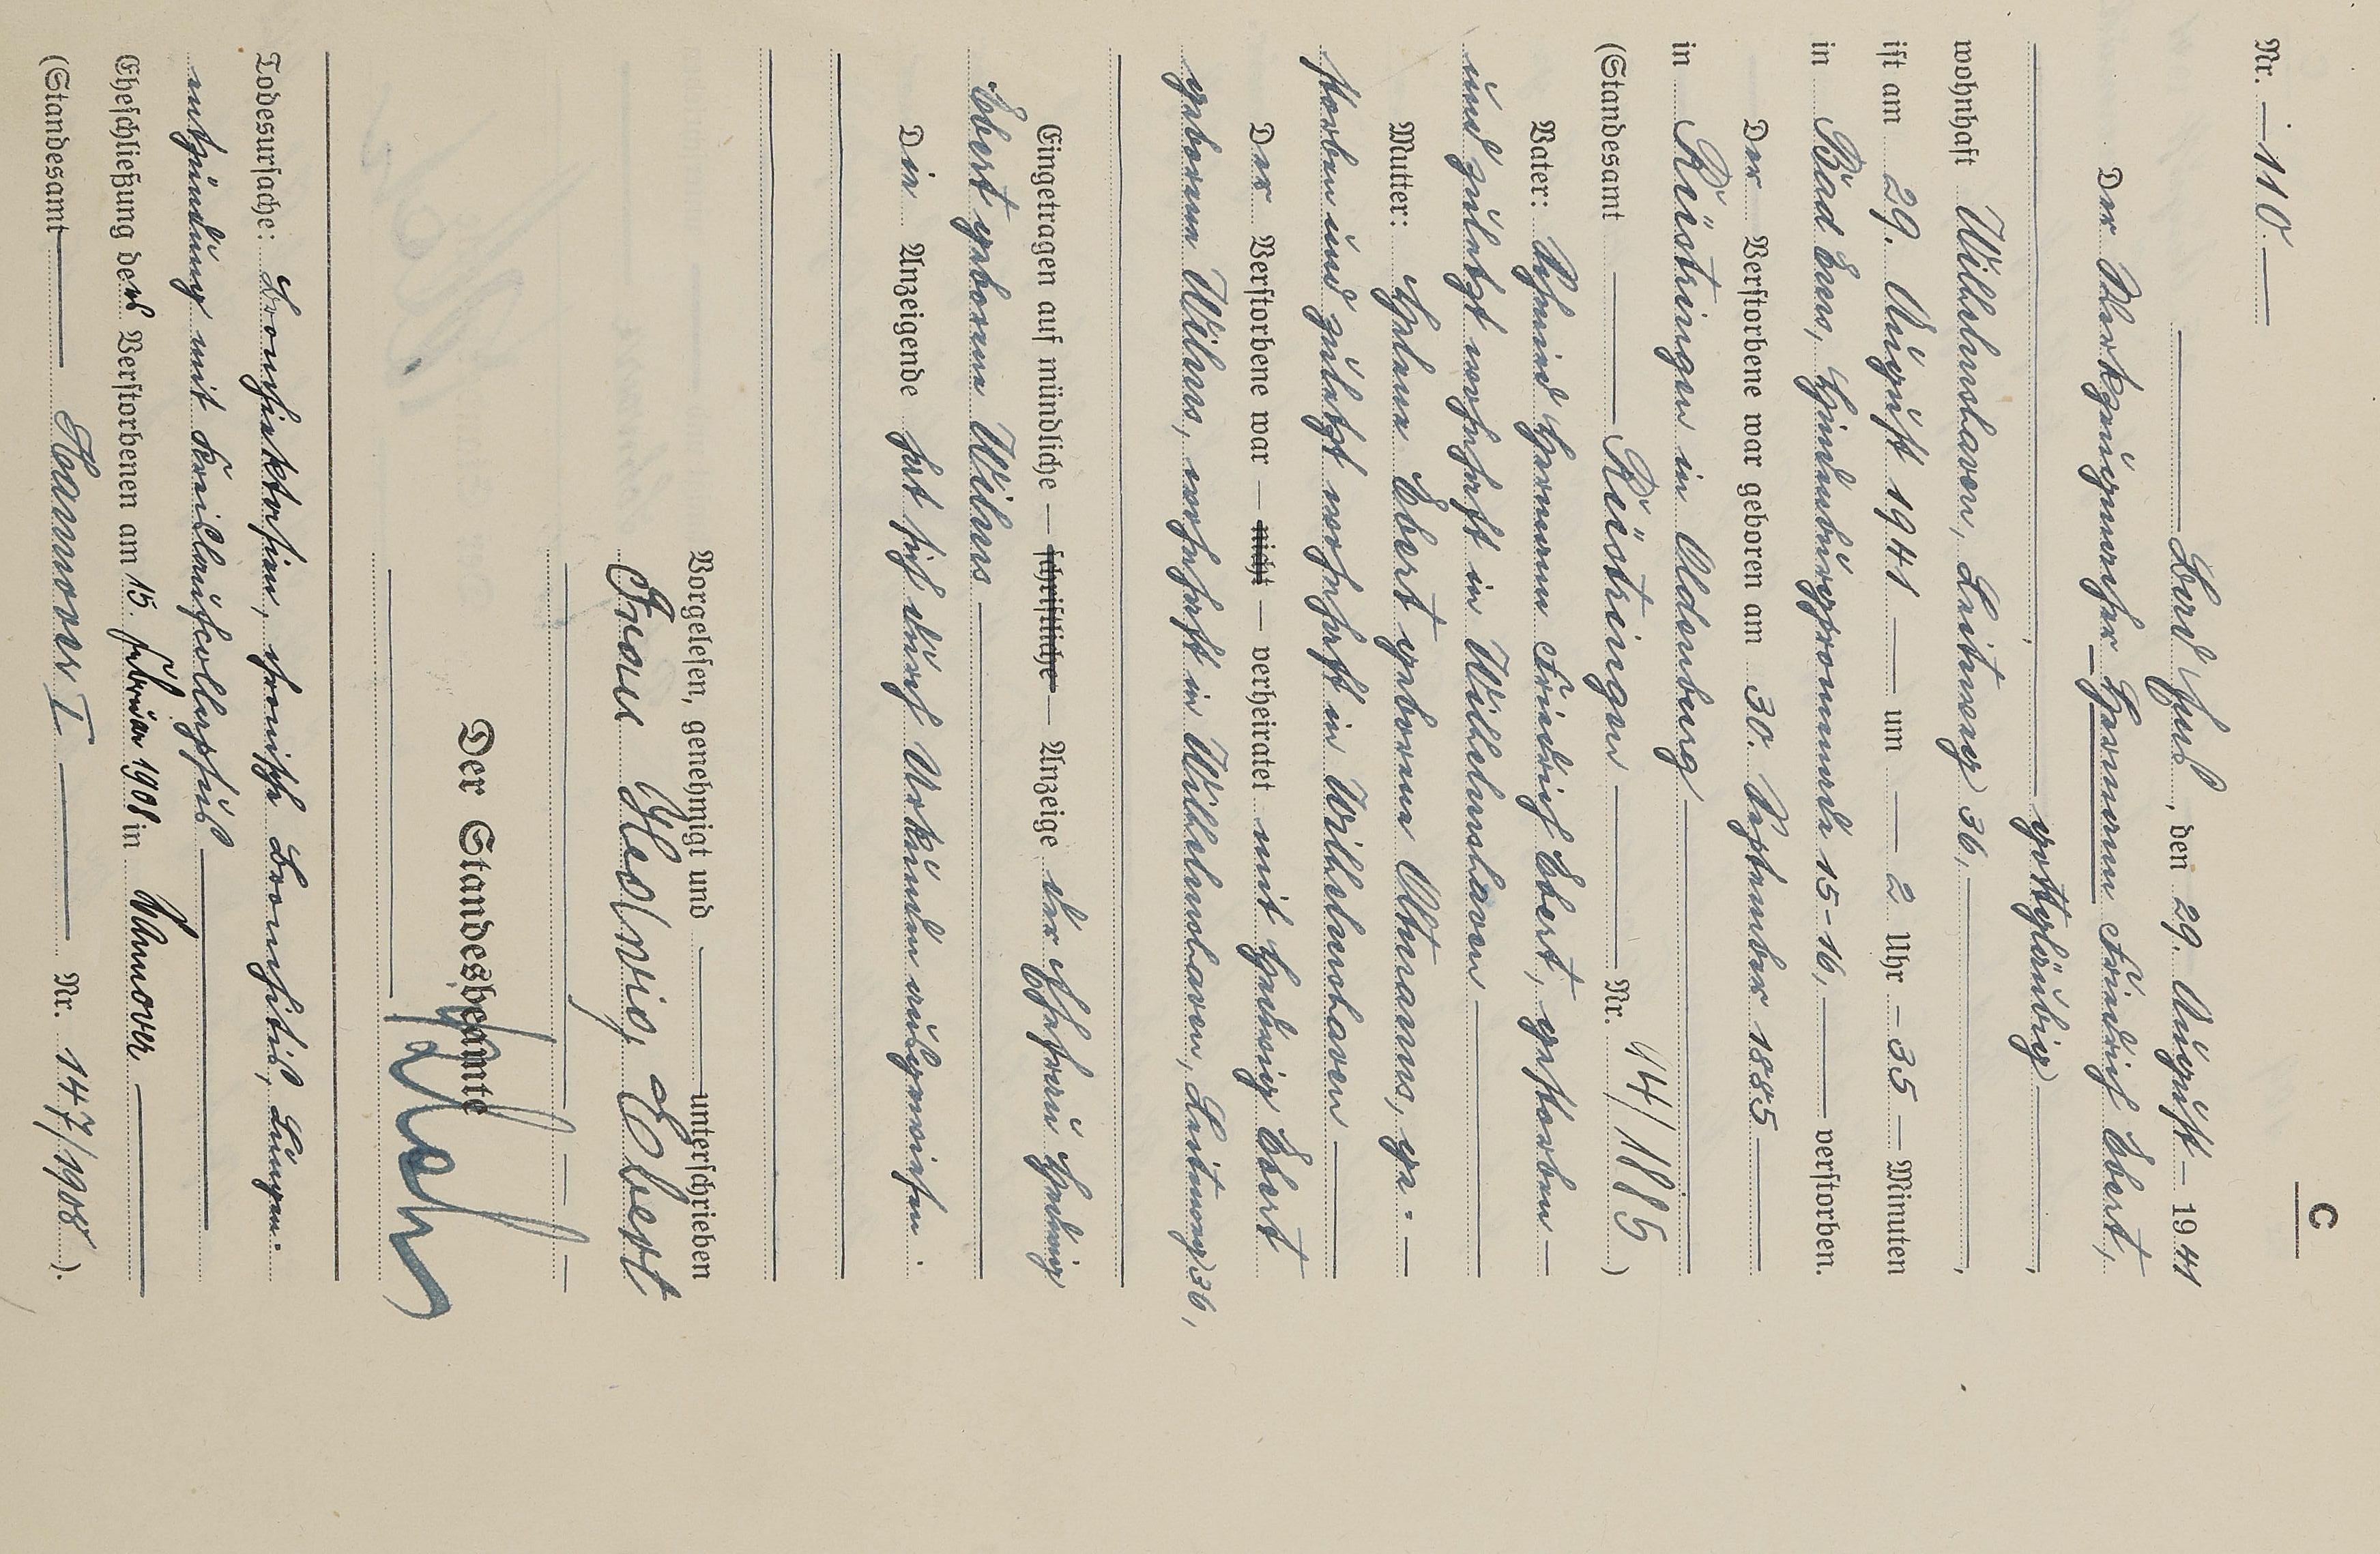 C
Nr. 110.
Bad Ems, den 29. August 1941
Der Werkzeugmacher Hermann Friedrich Ebert,
gottgläubig,
wohnhaft Wilhelmshaven, Leitweg 36,
ist am 29. August 1941 um 2 Uhr 35 Minuten
in Bad Ems, Hindenburgpromenade 15-16, verstorben.
Der Verstorbene war geboren am 30. September 1885
in Rüstringen in Oldenburg
(Standesamt Rüstringen Nr. 44/1885)
Vater: Hermann Friedrich Ebert, gestorben
und zuletzt wohnhaft in Wilhelmshaven
Mutter: Helene Ebert geborene Ulternanns, ge-
storben und zuletzt wohnhaft in Wilhelmshaven
Der Verstorbene war — nicht — verheiratet mit Hedwig Ebert
geborene Wilms, wohnhaft in Wilhelmshaven, Leitweg 36,
Eingetragen auf mündliche — schriftliche — Anzeige der Ehefrau Hedwig
Ebert geborene Wilms
Die Anzeigende hat sich durch Urkunden ausgewiesen.
Vorgelesen, genehmigt und unterschrieben
Frau Hedwig Ebert
Der Standesbeamte
Todesursache: Bronchiektasien, chronische Bronchitis, Lungen-
entzündung mit Kreislaufcollaps
Eheschließung des Verstorbenen am 15. Februar 1908 in Hannover
(Standesamt Hannover I Nr. 147/1908).